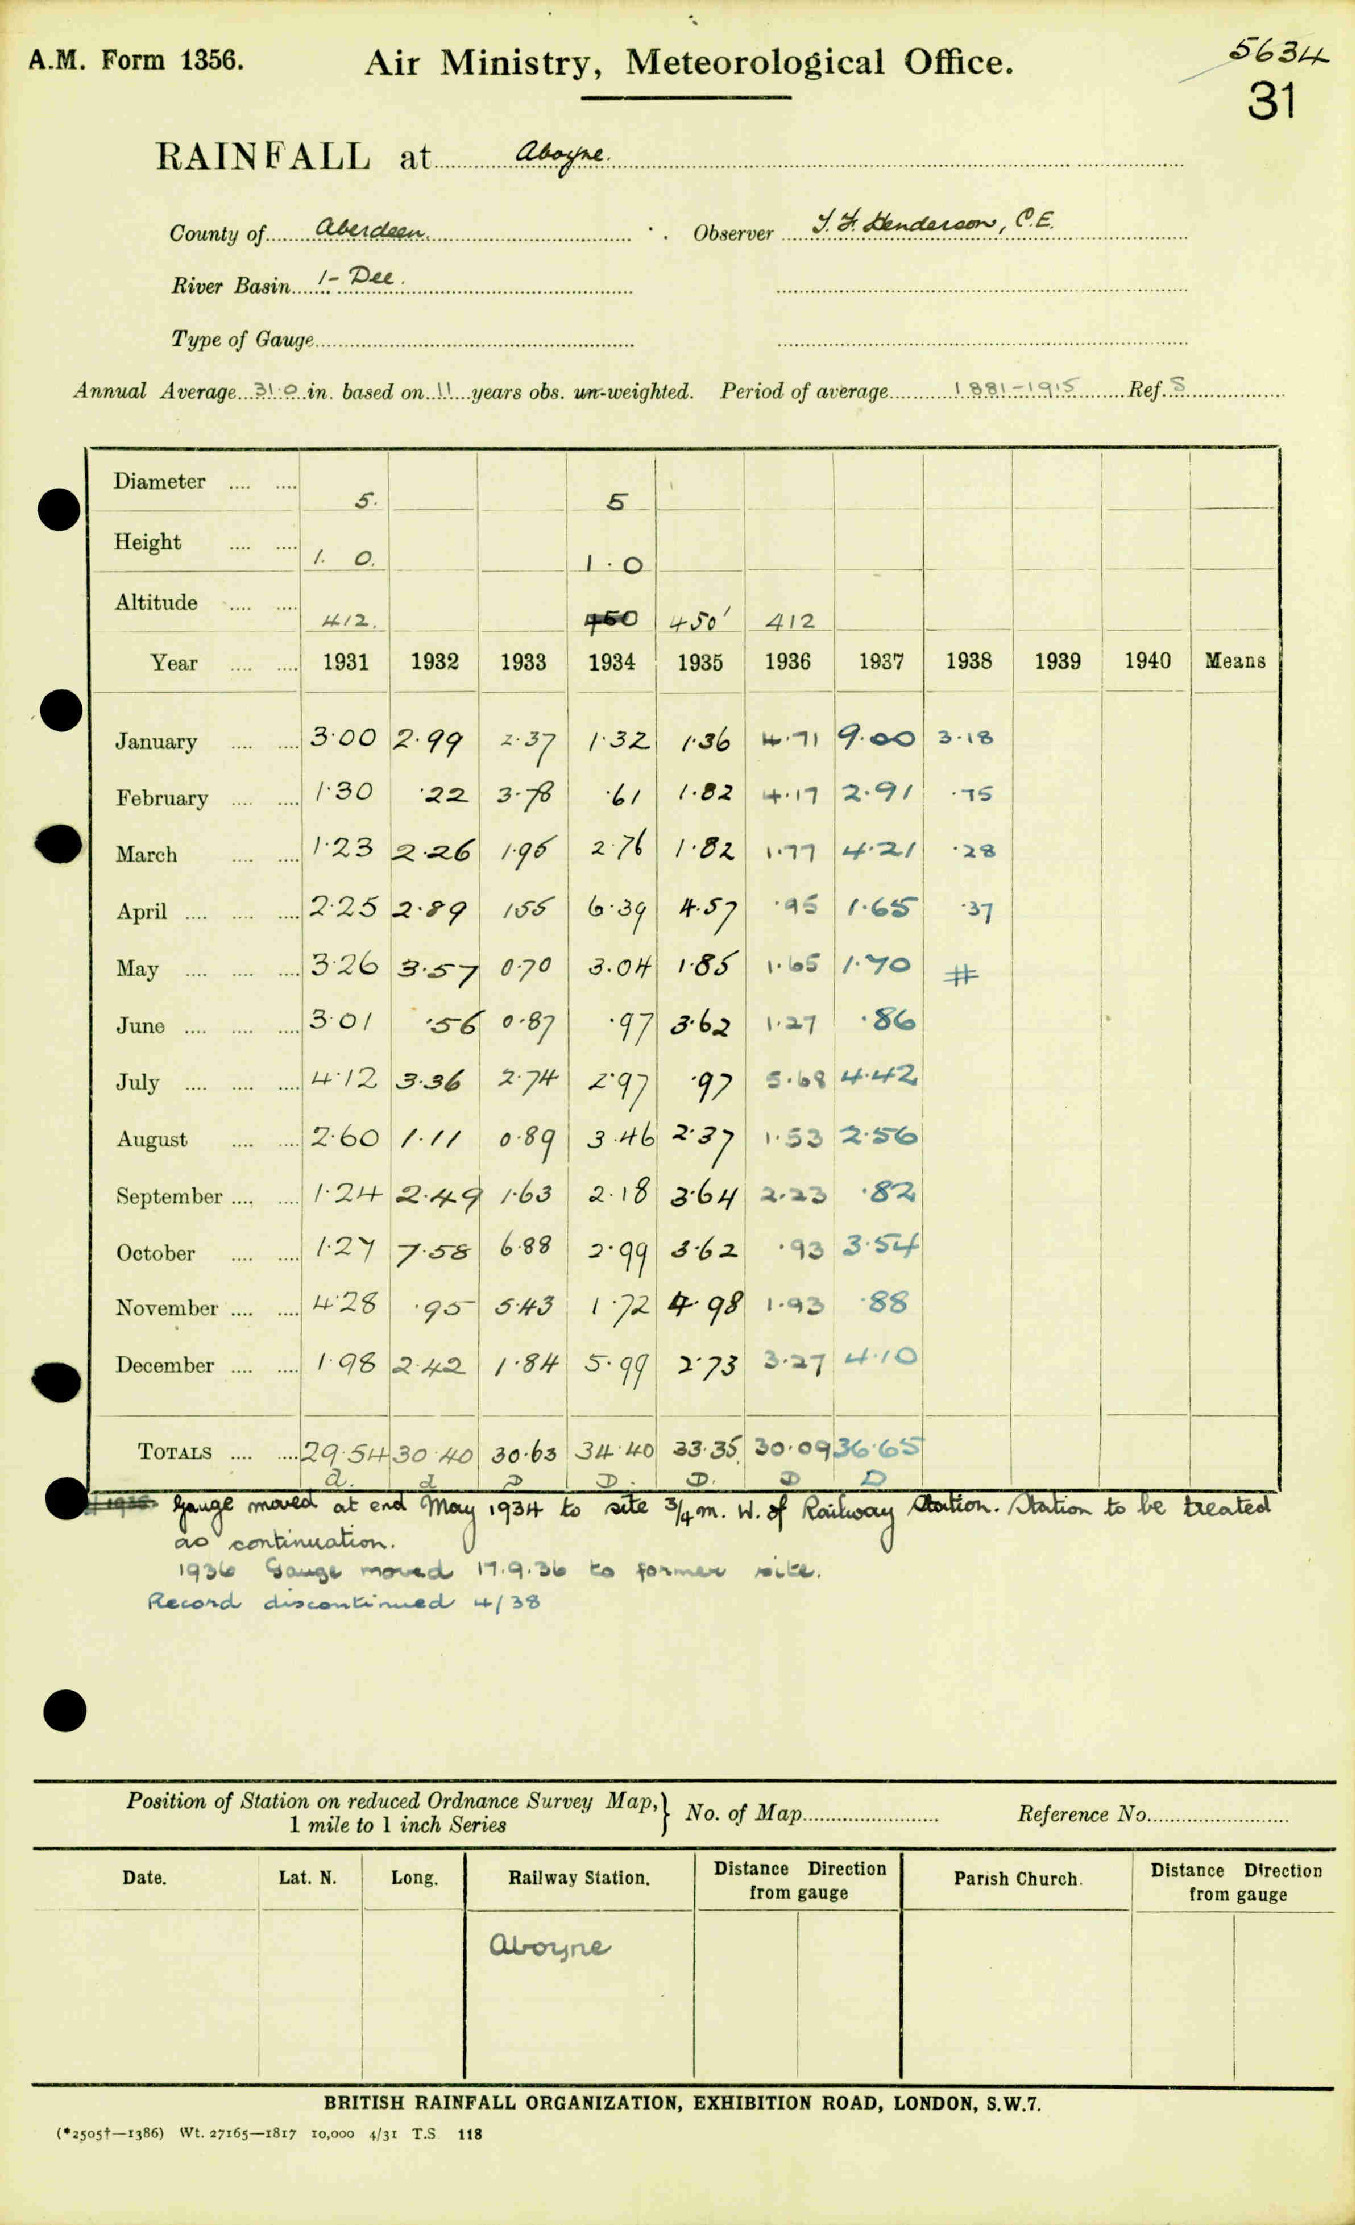 A.M. Form 1356.
Air Ministry, Meteorological Office.
5634
31
RAINFALL at Aboyne.
County of Aberdeen. Observer T. F. Henderson, C.E.
River Basin 1- Dee.
Type of Gauge
Annual Average 31.0 in. based on 11 years obs. un-weighted. Period of average 1881-1915 Ref. S
Diameter 5. 5
Height 1. 0. 1.0
Altitude 412. 450 450' 412
Year 1931 1932 1933 1934 1935 1936 1937 1938 1939 1940 Means
January 3.00 2.99 2.37 1.32 1.36 4.71 9.00 3.18
February 1.30 .22 3.78 .61 1.82 4.17 2.91 .75
March 1.23 2.26 1.95 2.76 1.82 1.77 4.21 .28
April 2.25 2.89 1.55 6.39 4.57 .95 1.65 .37
May 3.26 3.57 0.70 3.04 1.85 1.65 1.70 #
June 3.01 .56 0.87 .97 3.62 1.27 .86
July 4.12 3.36 2.74 2.97 .97 5.68 4.42
August 2.60 1.11 0.89 3.46 2.37 1.53 2.56
September 1.24 2.49 1.63 2.18 3.64 2.23 .82
October 1.27 7.58 6.88 2.99 3.62 .93 3.54
November 4.28 .95 5.43 1.72 4.98 1.93 .88
December 1.98 2.42 1.84 5.99 2.73 3.27 4.10
TOTALS 29.54 30.40 30.63 34.40 33.35 30.09 36.65
d. d D D. D. D D
Gauge moved at end May 1934 to site 3/4 m. W. of Railway Station. Station to be treated
as continuation.
1936 Gauge moved 17.9.36 to former site.
Record discontinued 4/38
Position of Station on reduced Ordnance Survey Map, 1 mile to 1 inch Series } No. of Map Reference No.
Date. Lat. N. Long. Railway Station. Distance Direction from gauge Parish Church. Distance Direction from gauge
Aboyne
BRITISH RAINFALL ORGANIZATION, EXHIBITION ROAD, LONDON, S.W.7.
(*2505†—1386) Wt. 27165—1817 10,000 4/31 T.S 118